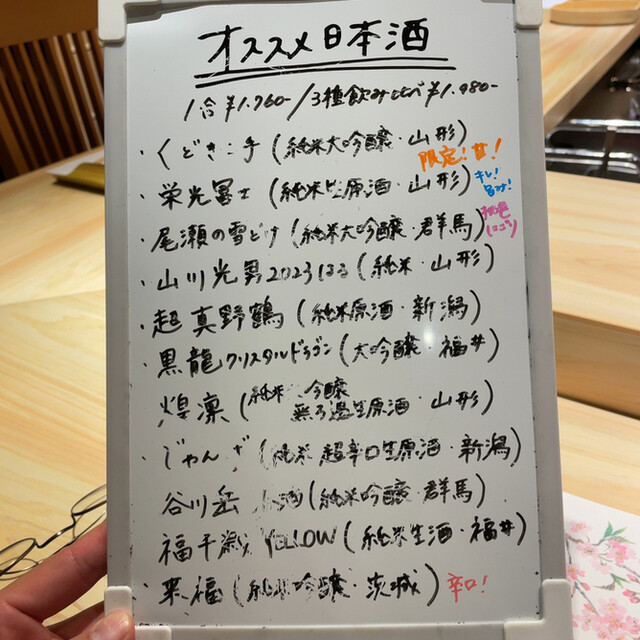 オススメ日本酒
1合¥1.760-/3種飲み比べ¥1.980-
・くどき上手(純米大吟醸・山形)
限定!甘!
・栄光冨士(純米生原酒・山形)
キレ!
旨み!
・尾瀬の雪どけ(純米大吟醸・群馬)
桃色
にごり
・山川光男2023はる(純米・山形)
・超真野鶴(純米原酒・新潟)
・黒龍クリスタルドラゴン(大吟醸・福井)
煌凛(純米 吟醸
無ろ過生原酒・山形)
・じゃんげ(純米 超辛口生原酒・新潟)
谷川岳 酒(純米吟醸・群馬)
福千歳 YELLOW(純米生酒・福井)
・来福(純米吟醸・茨城)
辛口!